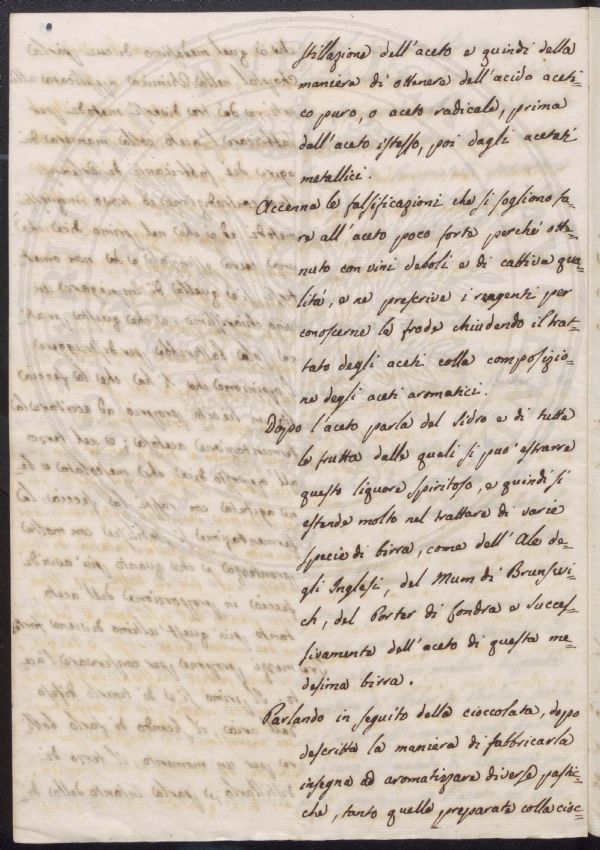 stillazione dell'aceto e quindi della
maniera di ottenere dell'acido aceti=
co puro, o aceto radicale, prima
dall'aceto istesso, poi dagli acetati
metallici.
Accenna le falsificazioni che si sogliono fa=
re all'aceto poco forte perché otte=
nuto con vini deboli e di cattiva qua=
lità, e ne prescrive i reagenti per
conoscerne la frode chiudendo il trat=
tato degli aceti colla composizio=
ne degli aceti aromatici.
Dopo l'aceto parla del sidro e di tutte
le frutta dalle quali si può estrarre
questo liquore spiritoso, e quindi si
estende molto nel trattare di varie
specie di birra, come dell'Ale de=
gli Inglesi, del Mum di Brunswi=
ch, del Porter di Londra e succes=
sivamente dell'aceto di questa me=
desima birra.
Parlando in seguito della cioccolata, dopo
descritta la maniera di fabbricarla
insegna ad aromatizzare diverse pastic=
che, tanto quelle preparate colla cioc=